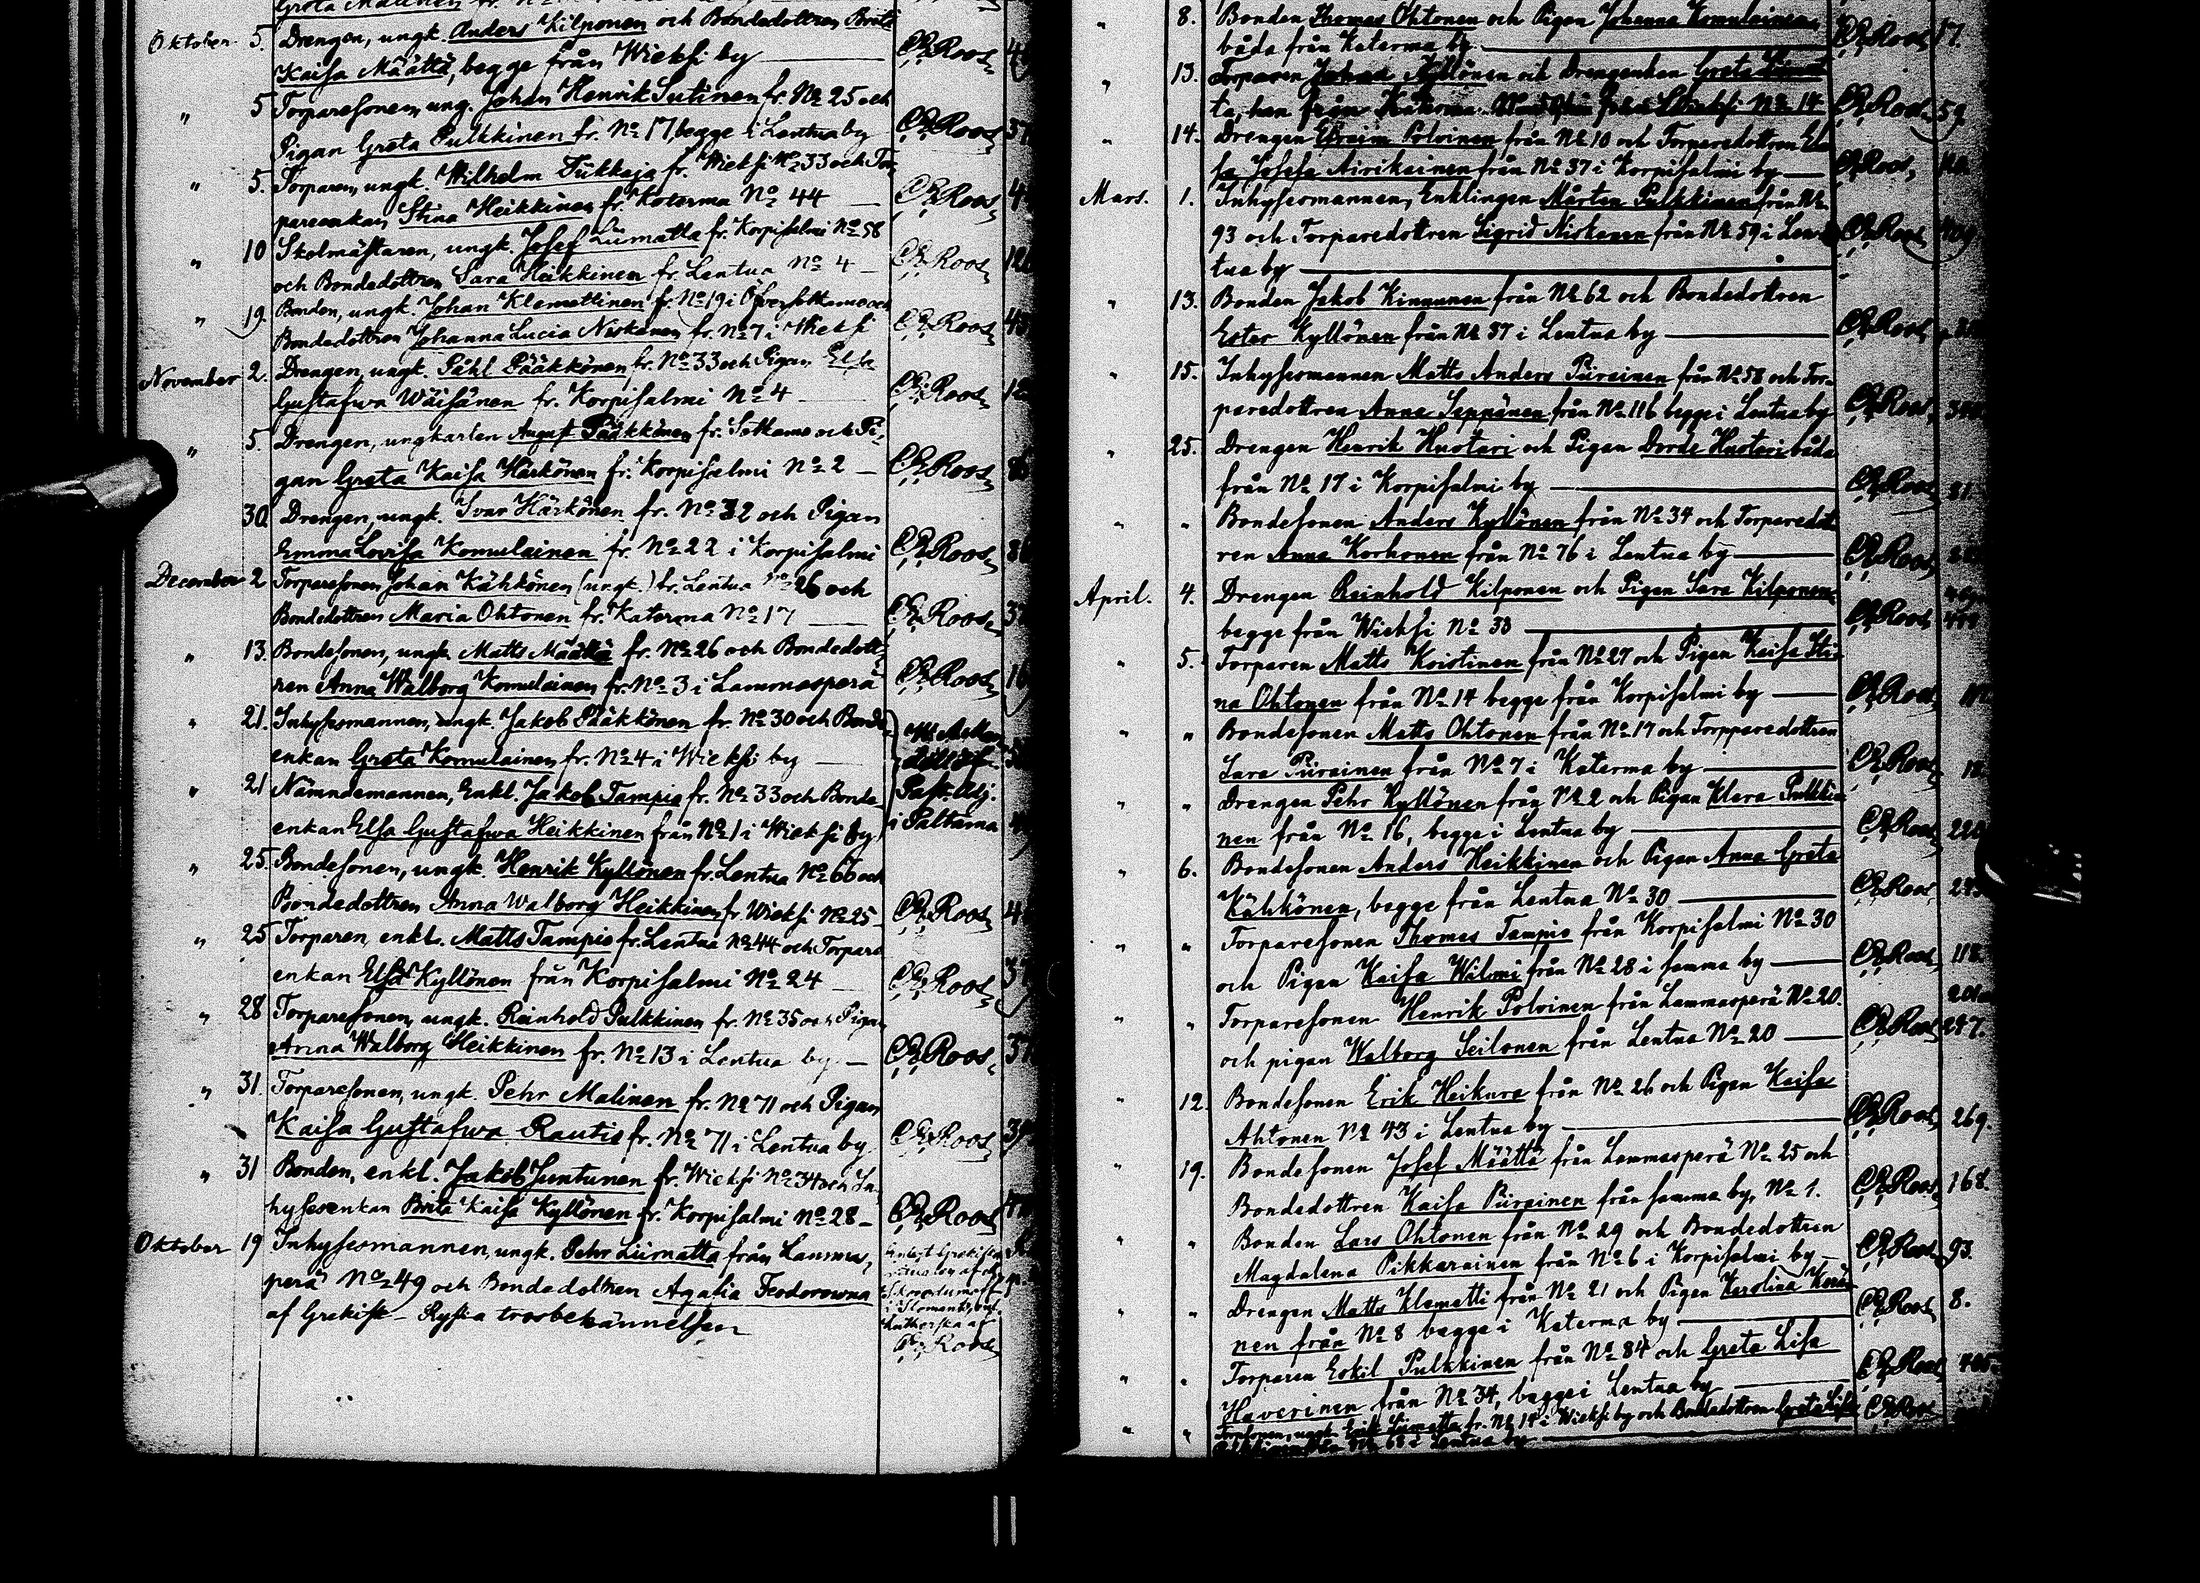 Greta Malinen fr. No
Oktober 5. Drengen, ungk. Anders Kilponen och Bondedottren Brita
Kaisa Määttä, begge från Wieksi by — CRRoos
" 5 Torparesonen, ung. Johan Henrik Sutinen fr. No 25 och
Pigan Greta Pulkkinen fr. No 17, begge i Lentua by CRRoos
" 5. Torparen, ungk. Wilhelm Tukkaja fr. Wieksi No 33 och Tor-
pareenkan Stina Heikkinen fr. Katerma No 44 — CRRoos
" 10 Skolmästaren, ungk. Josef Liimatta fr. Korpisalmi No 58
och Bondedottren Sara Heikkinen fr. Lentua No 4 — CRRoos
" 19. Bonden, ungk. Johan Klemettinen fr. No 19 i Öfversotkamo och
Bondedottren Johanna Lucia Niskanen fr. No 7 i Wieksi CRRoos
November 2. Drengen, ungk. Påhl Pääkkönen fr. No 33 och Pigan Elsa
Gustafwa Wäisänen fr. Korpisalmi No 4 — CRRoos
" 5. Drengen, ungkarlen August Pääkkönen fr. Sotkamo och Pi-
gan Greta Kaisa Härkönen fr. Korpisalmi No 2 — CRRoos
30. Drengen, ungk. Ivar Härkönen fr. No 32 och Pigan
Emma Lovisa Komulainen fr. No 22 i Korpisalmi CRRoos
December 2 Torparesonen Johan Kähkönen (ungk.) fr. Lentua No 26 och
Bondedottren Maria Ohtonen fr. Katerma No 17 — CRRoos
" 13. Bondesonen, ungk. Matts Määttä fr. No 26 och Bondedott-
ren Anna Walborg Komulainen fr. No 3 i Lammasperä CRRoos
" 21. Inhysesmannen, ungk. Jakob Pääkkönen fr. No 30 och Bonde-
enkan Greta Komulainen fr. No 4 i Wieksi by —
" 21 Nämndemannen, Enkl. Jakob Tampio fr. No 33 och Bonde- Past. Adj.
enkan Elsa Gustafwa Heikkinen från No 1 i Wieksi by i Paltamo
" 25. Bondesonen, ungk. Henrik Kyllönen fr. Lentua No 66 och
Bondedottren Anna Walborg Heikkinen fr. Wieksi No 25 CRRoos
" 25 Torparen, enkl. Matts Tampio fr. Lentua No 44 och Torpare-
enkan Elsa Kyllönen från Korpisalmi No 24 — CRRoos
" 28 Torparesonen, ungk. Reinhold Pulkkinen fr. No 35 och Pigan
Anna Walborg Heikkinen fr. No 13 i Lentua by. — CRRoos
" 31. Torparesonen, ungk. Pehr Malinen fr. No 71 och Pigan
Kaisa Gustafwa Rautio fr. No 71 i Lentua by CRRoos
" 31 Bonden, enkl. Jakob Juntunen fr. Wieksi No 34 och In-
hysesenkan Brita Kaisa Kyllönen fr. Korpisalmi No 28 — CRRoos
Oktober 19 Inhysesmannen, ungk. Pehr Liimatta från Lammas-
perä No 49 och Bondedottren Agafia Feodorowna
af Grekisk-Ryska trosbekännelsen
CRRoos
" 8. Bonden Thomas Ohtonen och Pigan Johanna Komulainen,
båda från Katerma by — CRRoos 17.
" 13. Torparen Johan Kyllönen och Drengenkan Greta Liimat-
ta, han från Katerma No 14 CRRoos 59
" 14. Drengen Efraim Polvinen från No 10 och Torparedottren El-
sa Josefa Airikainen från No 37 i Korpisalmi by — CRRoos
Mars. 1. Inhysesmannen, Enklingen Mårten Pulkkinen från No
93 och Torparedottren Sigrid Niskanen från No 59 i Len- CRRoos
tua by —
" 13. Bonden Jakob Kinnunen från No 62 och Bondedottren
Ester Kyllönen från No 37 i Lentua by — CRRoos
" 15. Inhysesmannen Matts Anders Piirainen från No 58 och Tor-
paredottren Anna Seppänen från No 116 begge i Lentua by CRRoos
" 25. Drengen Henrik Huotari och Pigan Dorde Huotari båda
från No 17 i Korpisalmi by — CRRoos 81.
" " Bondesonen Anders Kyllönen från No 34 och Torparedott-
ren Anna Korhonen från No 76 i Lentua by — CRRoos
April. 4. Drengen Reinhold Kilponen och Pigan Sara Kilponen
begge från Wieksi No 33 — CRRoos
" 5. Torparen Matts Koistinen från No 27 och Pigan Kaisa Sti-
na Ohtonen från No 14 begge från Korpisalmi by — CRRoos
" " Bondesonen Matts Ohtonen från No 17 och Torpparedottren
Sara Piirainen från No 7 i Katerma by — CRRoos
" " Drengen Pehr Kyllönen från No 2 och Pigan Klara Pulkki-
nen från No 16, begge i Lentua by — CRRoos 220
" 6. Bondesonen Anders Heikkinen och Pigan Anna Greta
Kähkönen, begge från Lentua No 30 — CRRoos
" " Torparesonen Thomas Tampio från Korpisalmi No 30
och Pigan Kaisa Wilmi från No 28 i samma by — CRRoos 118.
" " Torparesonen Henrik Polvinen från Lammasperä No 20.
och pigan Walborg Seilonen från Lentua No 20 — CRRoos 247.
" 12. Bondesonen Erik Heikura från No 26 och Pigan Kaisa
Ahtonen No 43 i Lentua by — CRRoos 269.
" 19. Bondesonen Josef Määttä från Lammasperä No 25 och
Bondedottren Kaisa Piirainen från samma by, No 1. CRRoos 168.
" " Bonden Lars Ohtonen från No 29 och Bondedottren
Magdalena Pikkarainen från No 6 i Korpisalmi by — CRRoos 93.
" " Drengen Matts Klemetti från No 21 och Pigan Karolina Kerä-
nen från No 8 begge i Katerma by — CRRoos 8.
" " Torparen Eskil Pulkkinen från No 84 och Greta Lisa
Haverinen från No 34, begge i Lentua by — CRRoos
" " Torpsonen, ungk. Erik Liimatta fr. No 14 i Wieksi by och Bondedottren Greta Lisa CRRoos
i Lentua by —